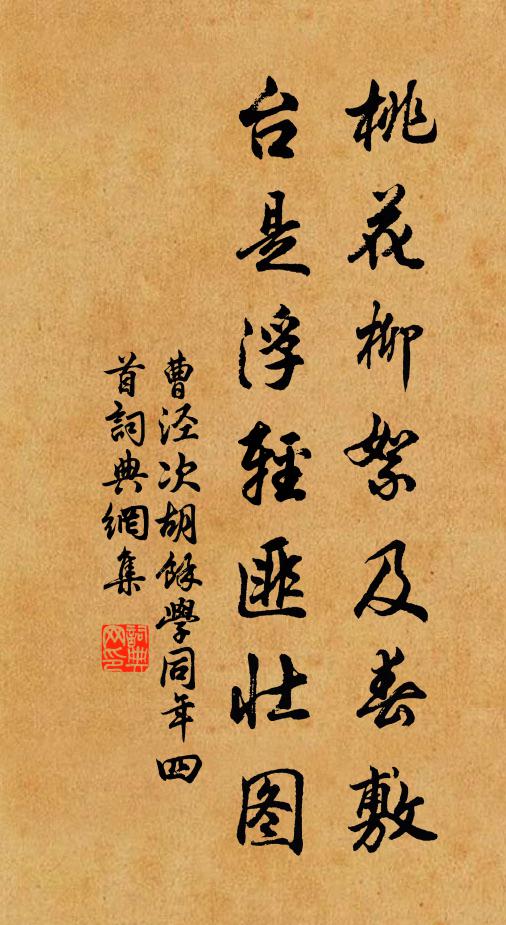 桃花柳絮及春敷
台是浮轻匪壮图
曹泾次胡馀学同年四
首词典网集
词典网印